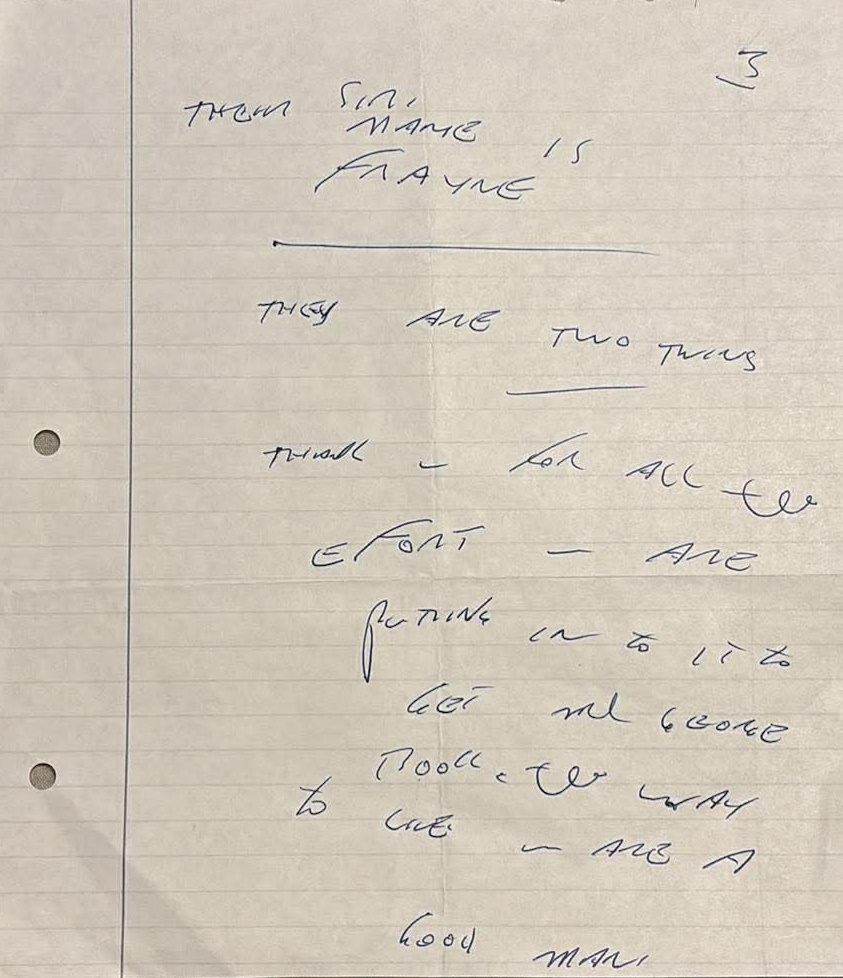 3
THEIR SIR.
NAME IS
FRAYNE
THEY ARE TWO TWINS
THANK u FOR ALL the
EFORT u ARE
PUTTING IN to IT to
GET me GEORGE
BOOK. the WAY
to LIVE u ARE A
GOOD MAN.